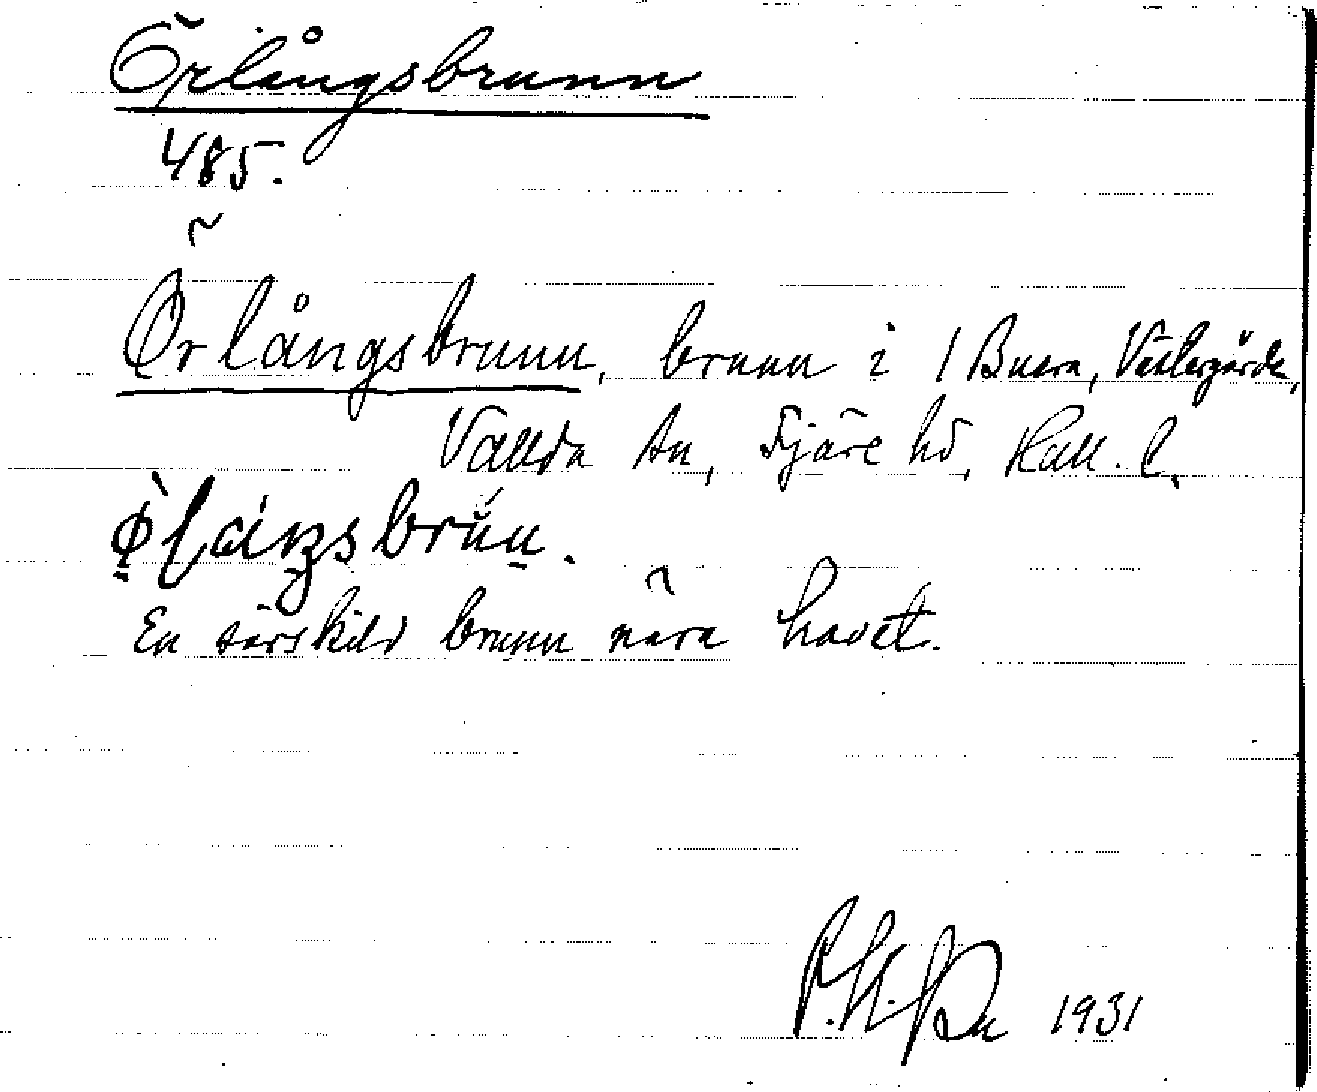 Örlångsbrunn
485.
Örlångsbrunn, brunn i 1 Buera, Västergärde,
Vallda sn, Fjäre hd, Hall. l.
En särskild brunn nära havet.
1931